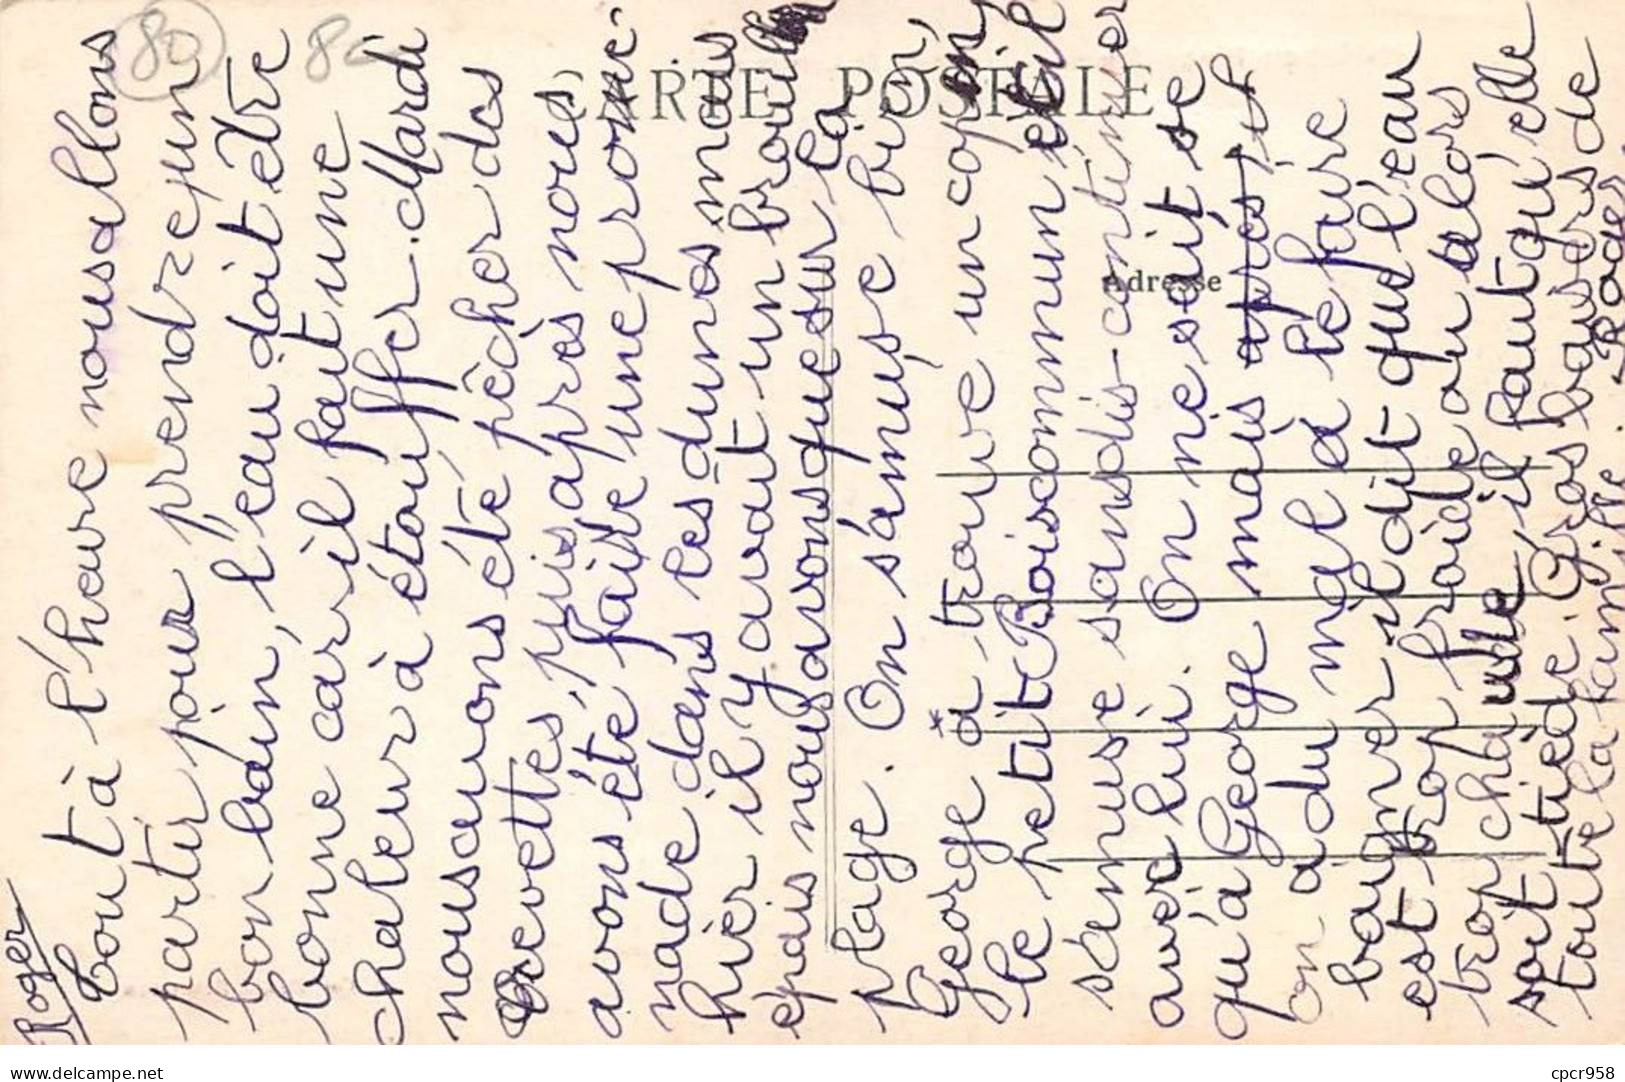 Roger
Tout à l'heure nous allons
partir pour prendre un
bon bain, l'eau doit être
bonne car il fait une
chaleur à étouffer. Mardi
nous avons été pêcher des
crevettes, puis après nous
avons été faire une prome-
nade dans les dunes mais
hier il y avait un brouillard
épais nous avons que sur la
plage. On s'amuse bien,
George a trouvé un copin
le petit Boiscommun et il
s'amuse sans dis-continuer
avec lui. On ne sait se
qu'a George mais après, il
on a du mal à le faire
baigner il dit que l'eau
est trop froide ou alors
trop chaude, il faut qu'elle
soit tiède. Gros baisers de
toute la famille. Roger
CARTE POSTALE
Adresse
80
80
delcampe.net
cpcr958